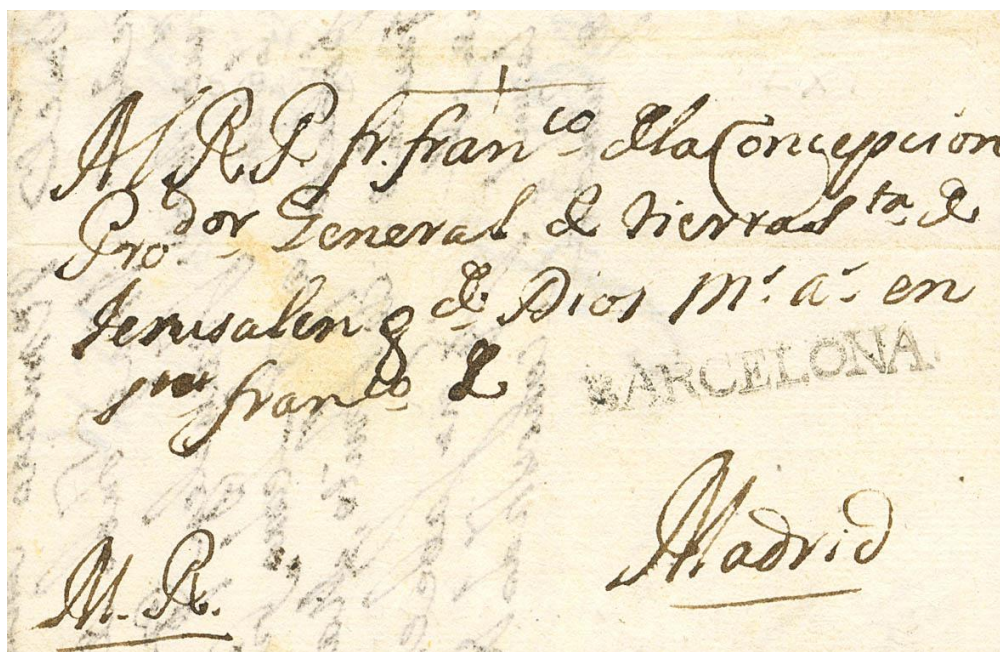 Al R P fr. fran.co de la Concepcion
Pro.dor General de tierra S.ta de
Jerusalen g.de Dios m.s a.s en
fran.co de
BARCELONA.
Madrid
M. R.